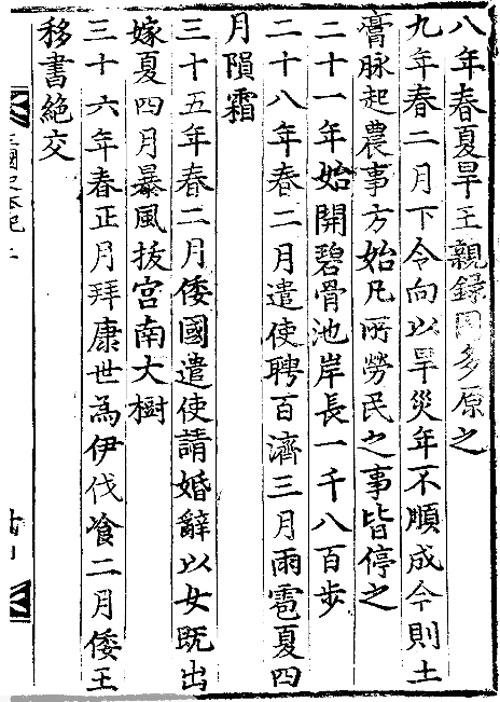 八年春夏旱王親録囚多原之
九年春二月下令向以旱災年不順成今則土
膏脉起農事方始凡所勞民之事皆停之
二十一年始開碧骨池岸長一千八百歩
二十八年春二月遣使聘百濟三月雨雹夏四
月隕霜
三十五年春二月倭國遣使請婚辭以女既出
嫁夏四月暴風拔宮南大樹
三十六年春正月拜康世為伊伐飡二月倭王
移書絶交
三國史本紀二